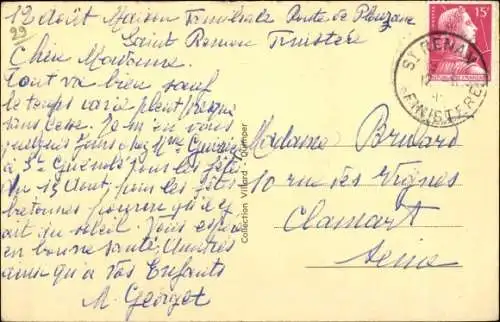 12 août Maison Familiale Route de Plouzané
29
Saint Renan Finistère
Chère Madame.
Tout va bien sauf
le temps varié pleut presque
sans cesse. Je m'en vais
quelques jours chez Mme
à St Guénolé pour les fêtes
du 15 Aout, pour les fêtes
bretonnes pourvu qu'il y
ait du soleil. Vous espère
en bonne santé, André
ainsi qu'à Vos Enfants
M. Georget
Collection Villard - Quimper
15F
ST RENAN
FINISTERE
Madame Brulard
10 rue des Vignes
Clamart
Seine